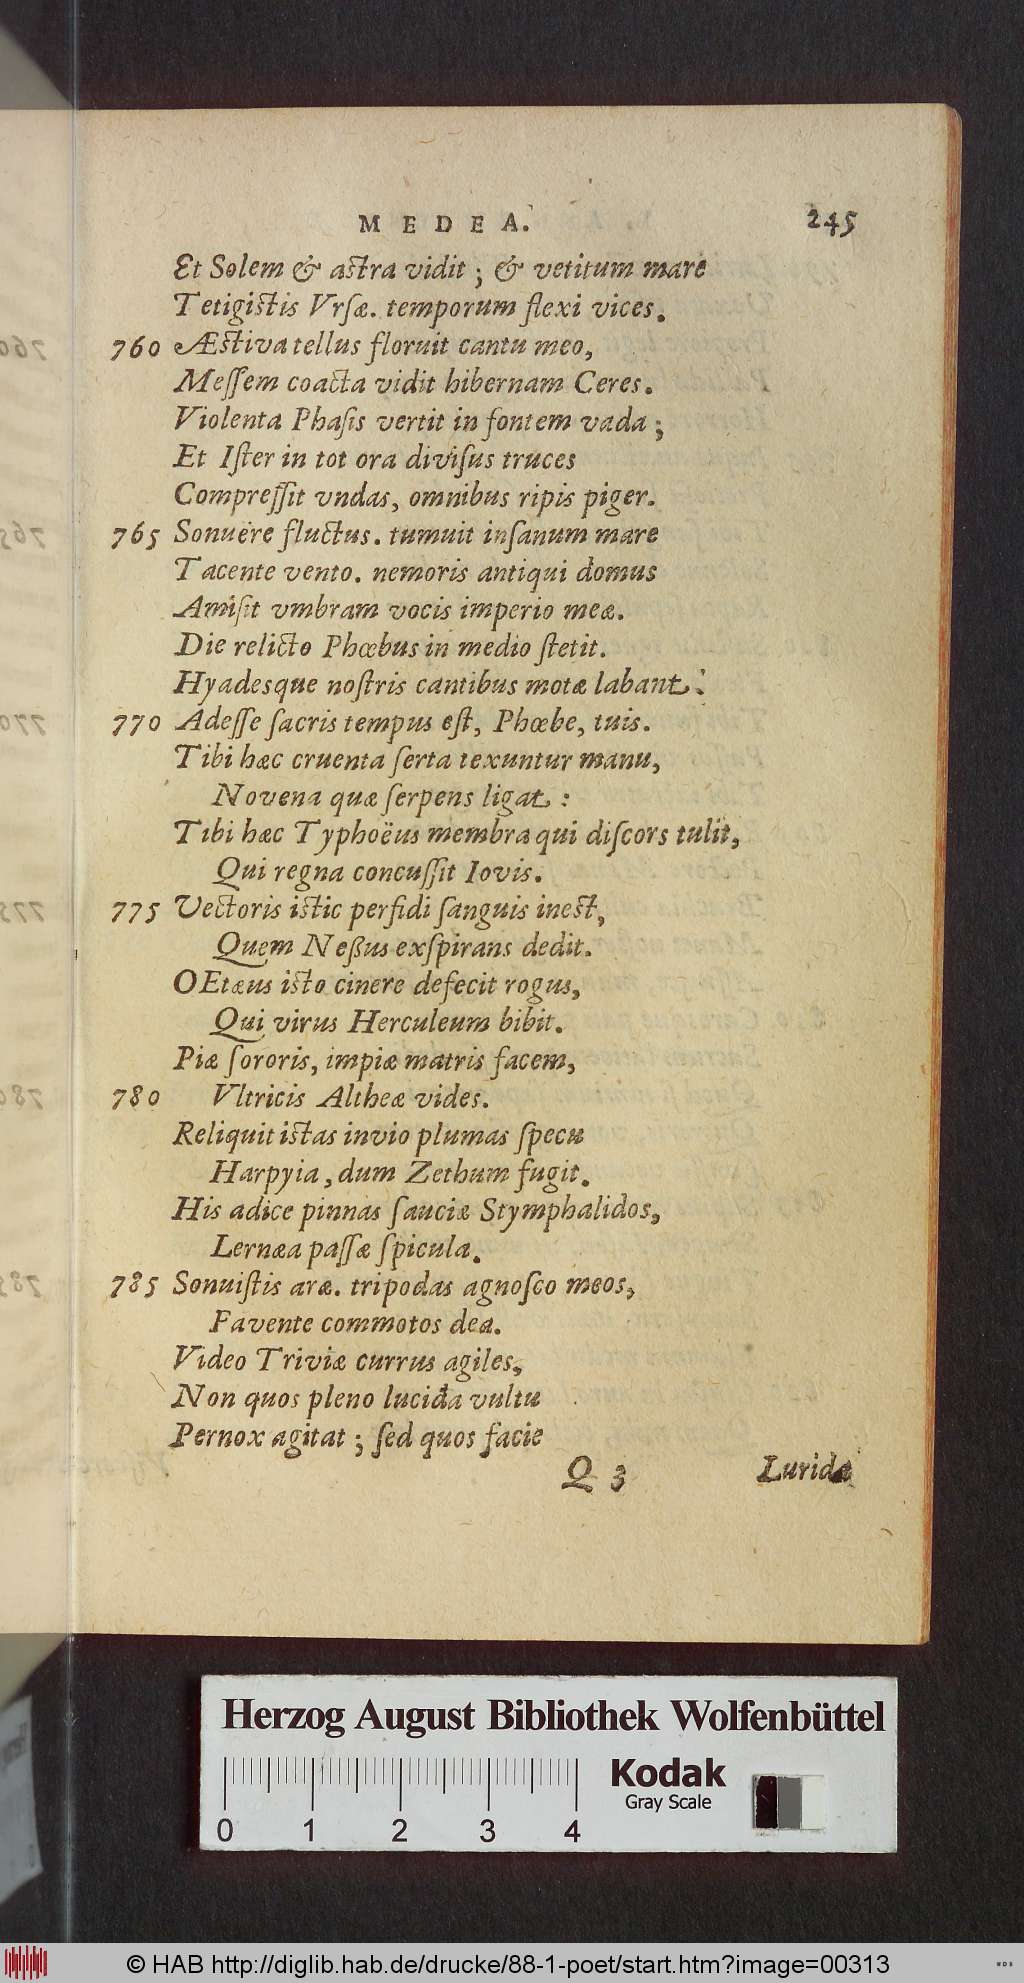 MEDEA. 245
Et Solem & astra vidit ; & vetitum mare
Tetigistis Vrſæ. temporum flexi vices.
760 Æstiva tellus floruit cantu meo,
Meſſem coacta vidit hibernam Ceres.
Violenta Phaſis vertit in fontem vada ;
Et Iſter in tot ora diviſus truces
Compreſſit vndas, omnibus ripis piger.
765 Sonuëre fluctus. tumuit inſanum mare
Tacente vento. nemoris antiqui domus
Amiſit vmbram vocis imperio meæ.
Die relicto Phœbus in medio ſtetit.
Hyadesque noſtris cantibus motæ labant.
770 Adeſſe ſacris tempus eſt, Phœbe, tuis.
Tibi hæc cruenta ſerta texuntur manu,
Novena quæ ſerpens ligat :
Tibi hæc Typhoëus membra qui diſcors tulit,
Qui regna concuſſit Iovis.
775 Vectoris istic perfidi ſanguis inest,
Quem Neßus exſpirans dedit.
OEtæus isto cinere defecit rogus,
Qui virus Herculeum bibit.
Piæ ſororis, impiæ matris facem,
780 Vltricis Altheæ vides.
Reliquit istas invio plumas ſpecu
Harpyia, dum Zethum fugit.
His adice pinnas ſauciæ Stymphalidos,
Lernæa paſſæ ſpicula.
785 Sonuiſtis aræ. tripodas agnoſco meos,
Favente commotos dea.
Video Triviæ currus agiles,
Non quos pleno lucida vultu
Pernox agitat ; ſed quos facie
Q 3 Lurida
760
765
770
775
780
785
Herzog August Bibliothek Wolfenbüttel
Kodak
Gray Scale
0 1 2 3 4
© HAB http://diglib.hab.de/drucke/88-1-poet/start.htm?image=00313